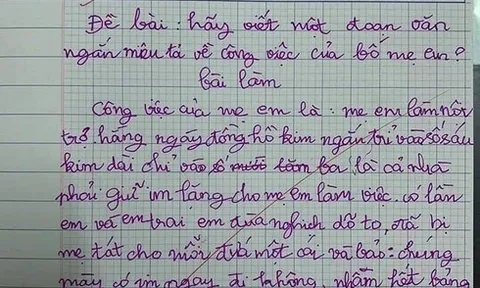 Đề bài: hãy viết một đoạn văn
ngắn miêu tả về công việc của bố mẹ em?
bài làm
Công việc của mẹ em là: mẹ em làm nội
trợ hằng ngày đồng hồ kim ngắn trỉ vào số sáu
kim dài chỉ vào số mười lăm ba là cả nhà
phải giữ im lặng cho mẹ em làm việc. có lần
em và em trai em đùa nghịch dỗ to, đã bị
mẹ tát cho mỗi đứa một cái và bảo: chúng
mày có im ngay đi không, nhầm hết bảng